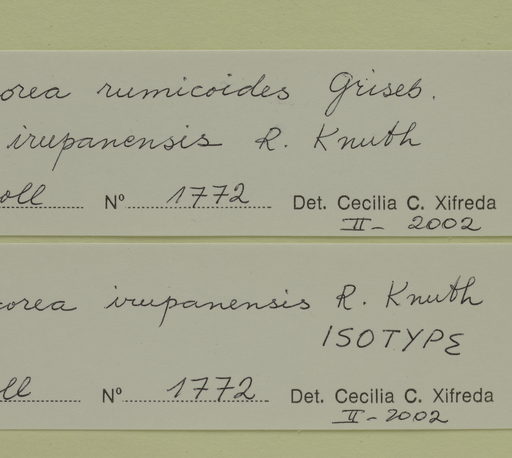 orea rumicoides Griseb.
irupanensis R. Knuth
oll Nº 1772 Det. Cecilia C. Xifreda
II- 2002
corea irupanensis R. Knuth
ISOTYPE
ll Nº 1772 Det. Cecilia C. Xifreda
II-2002